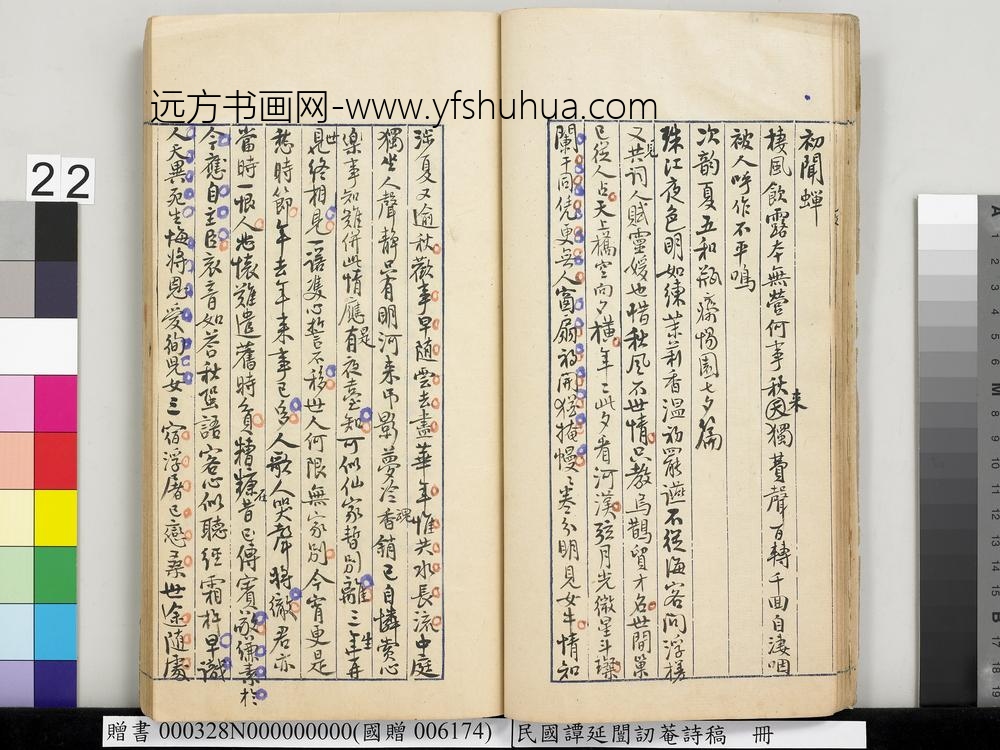 远方书画网-www.yfshuhua.com
初聞蟬
棲風飲露本無營何事秋来獨費聲百轉千回自淒咽
被人呼作不平鳴
次韵夏五和瓶齋惕園七夕篇
珠江夜色明如練茉莉香溫初罷讌不從海客問浮槎
又見共詞人賦靈媛也惜秋風不世情只教烏鵲貿才名世間巢
已從人占天上橋空向夕橫年年此夕看河漢弦月光微星斗璨
闌干同凭更無人窗扇初開猶掩幔幔卷分明見女牛情知
涉夏又逾秋歡事早随雲去盡華年惟共水長流中庭
獨坐人聲静只有明河来弔影夢冷香銷已自憐賞心
樂事知難併此情應是有夜臺知可似仙家暫别離三生再
世見終相見一語雙心誓不移世人何限無家别今宵更是
愁時節年去年来事已多人歌人哭聲將徹君亦
當時一恨人悲懷難遣舊時貧糟糠在昔已傳賓
今應自主臣哀音如答秋蛩語客心似聽經霜杵早識
人天異死生悔將恩愛徇兒女三宿浮屠已戀桑世途随處
22
贈書 000328N000000000(國贈 006174)
民國譚延闓訒菴詩稿 冊